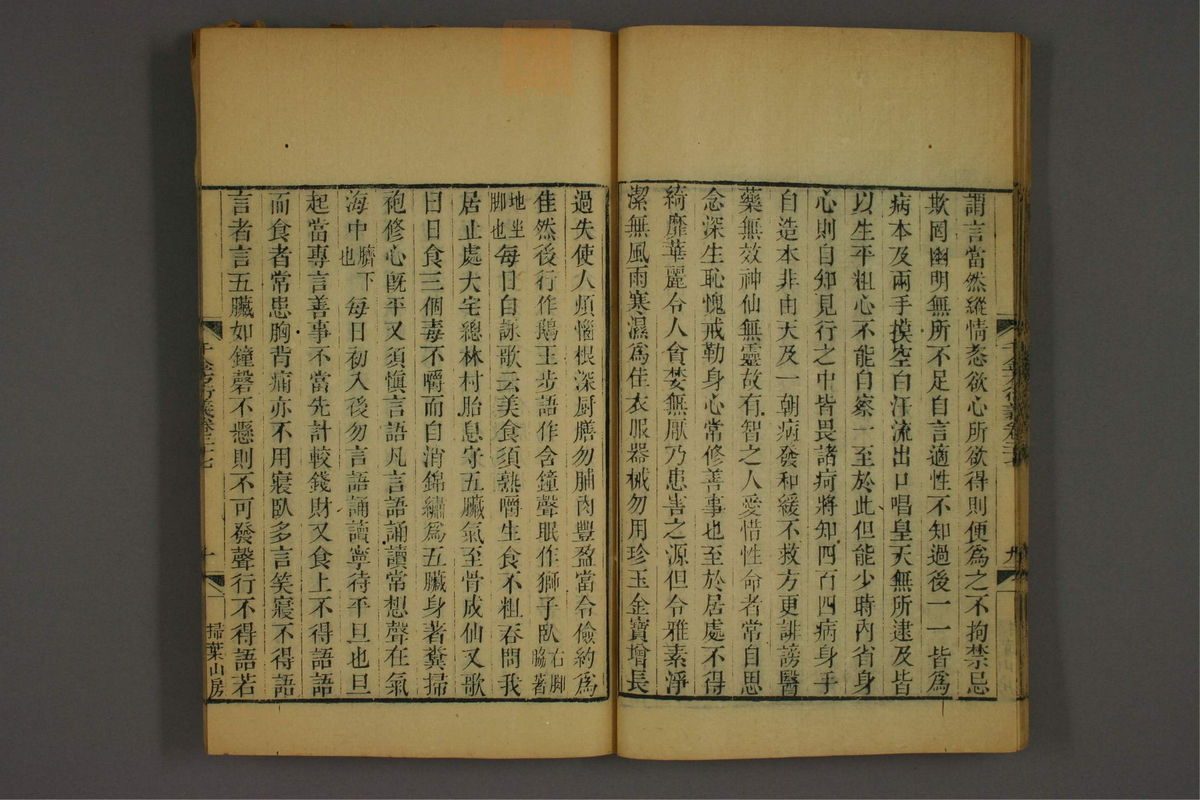 謂言當然縱情恣欲心所欲得則便爲之不拘禁忌
欺罔幽明無所不足自言適性不知過後一一皆爲
病本及兩手摸空白汗流出口唱皇天無所逮及皆
以生平粗心不能自察一至於此但能少時內省身
心則自知見行之中皆畏諸疴將知四百四病身手
自造本非由天及一朝病發和緩不救方更誹謗醫
藥無效神仙無靈故有智之人愛惜性命者常自思
念深生恥愧戒勒身心常修善事也至於居處不得
綺靡華麗令人貪婪無厭乃患害之源但令雅素淨
潔無風雨寒濕爲佳衣服器械勿用珍玉金寶增長
過失使人煩惱根深厨膳勿脯肉豐盈當令儉約爲
佳然後行作鵝王步語作含鐘聲眠作獅子臥右脚脇著
地坐脚也每日自詠歌云美食須熟嚼生食不粗吞問我
居止處大宅總林村胎息守五臟氣至骨成仙又歌
曰日食三個毒不嚼而自消錦繡爲五臟身著糞掃
袍修心旣平又須愼言語凡言語誦讀常想聲在氣
海中臍下也每日初入後勿言語誦讀寧待平旦也旦
起當專言善事不當先計較錢財又食上不得語語
而食者常患胸背痛亦不用寢臥多言笑寢不得語
言者言五臟如鐘磬不懸則不可發聲行不得語若
千金方衍義卷二十七
十
掃葉山房